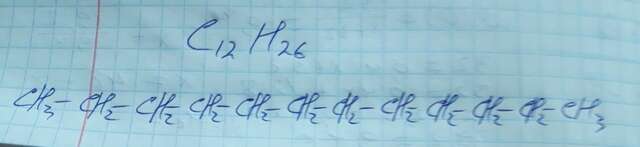 C₁₂H₂₆
CH₃-CH₂-CH₂-CH₂-CH₂-CH₂-CH₂-CH₂-CH₂-CH₂-CH₂-CH₃